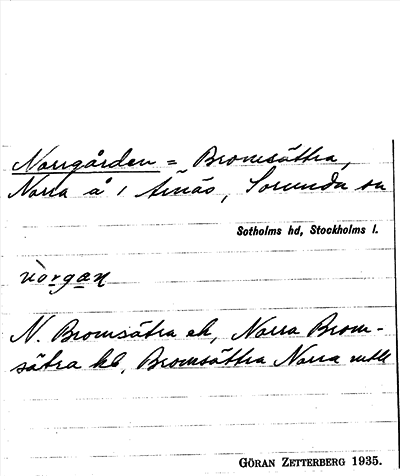 Norrgården = Bromsättra,
Norra å i Årnäs, Sorunda sn
Sotholms hd, Stockholms l.
norgan
N. Bromsätra ek, Norra Brom-
sätra kb, Bromsättra Norra mtlk
GÖRAN ZETTERBERG 1935.